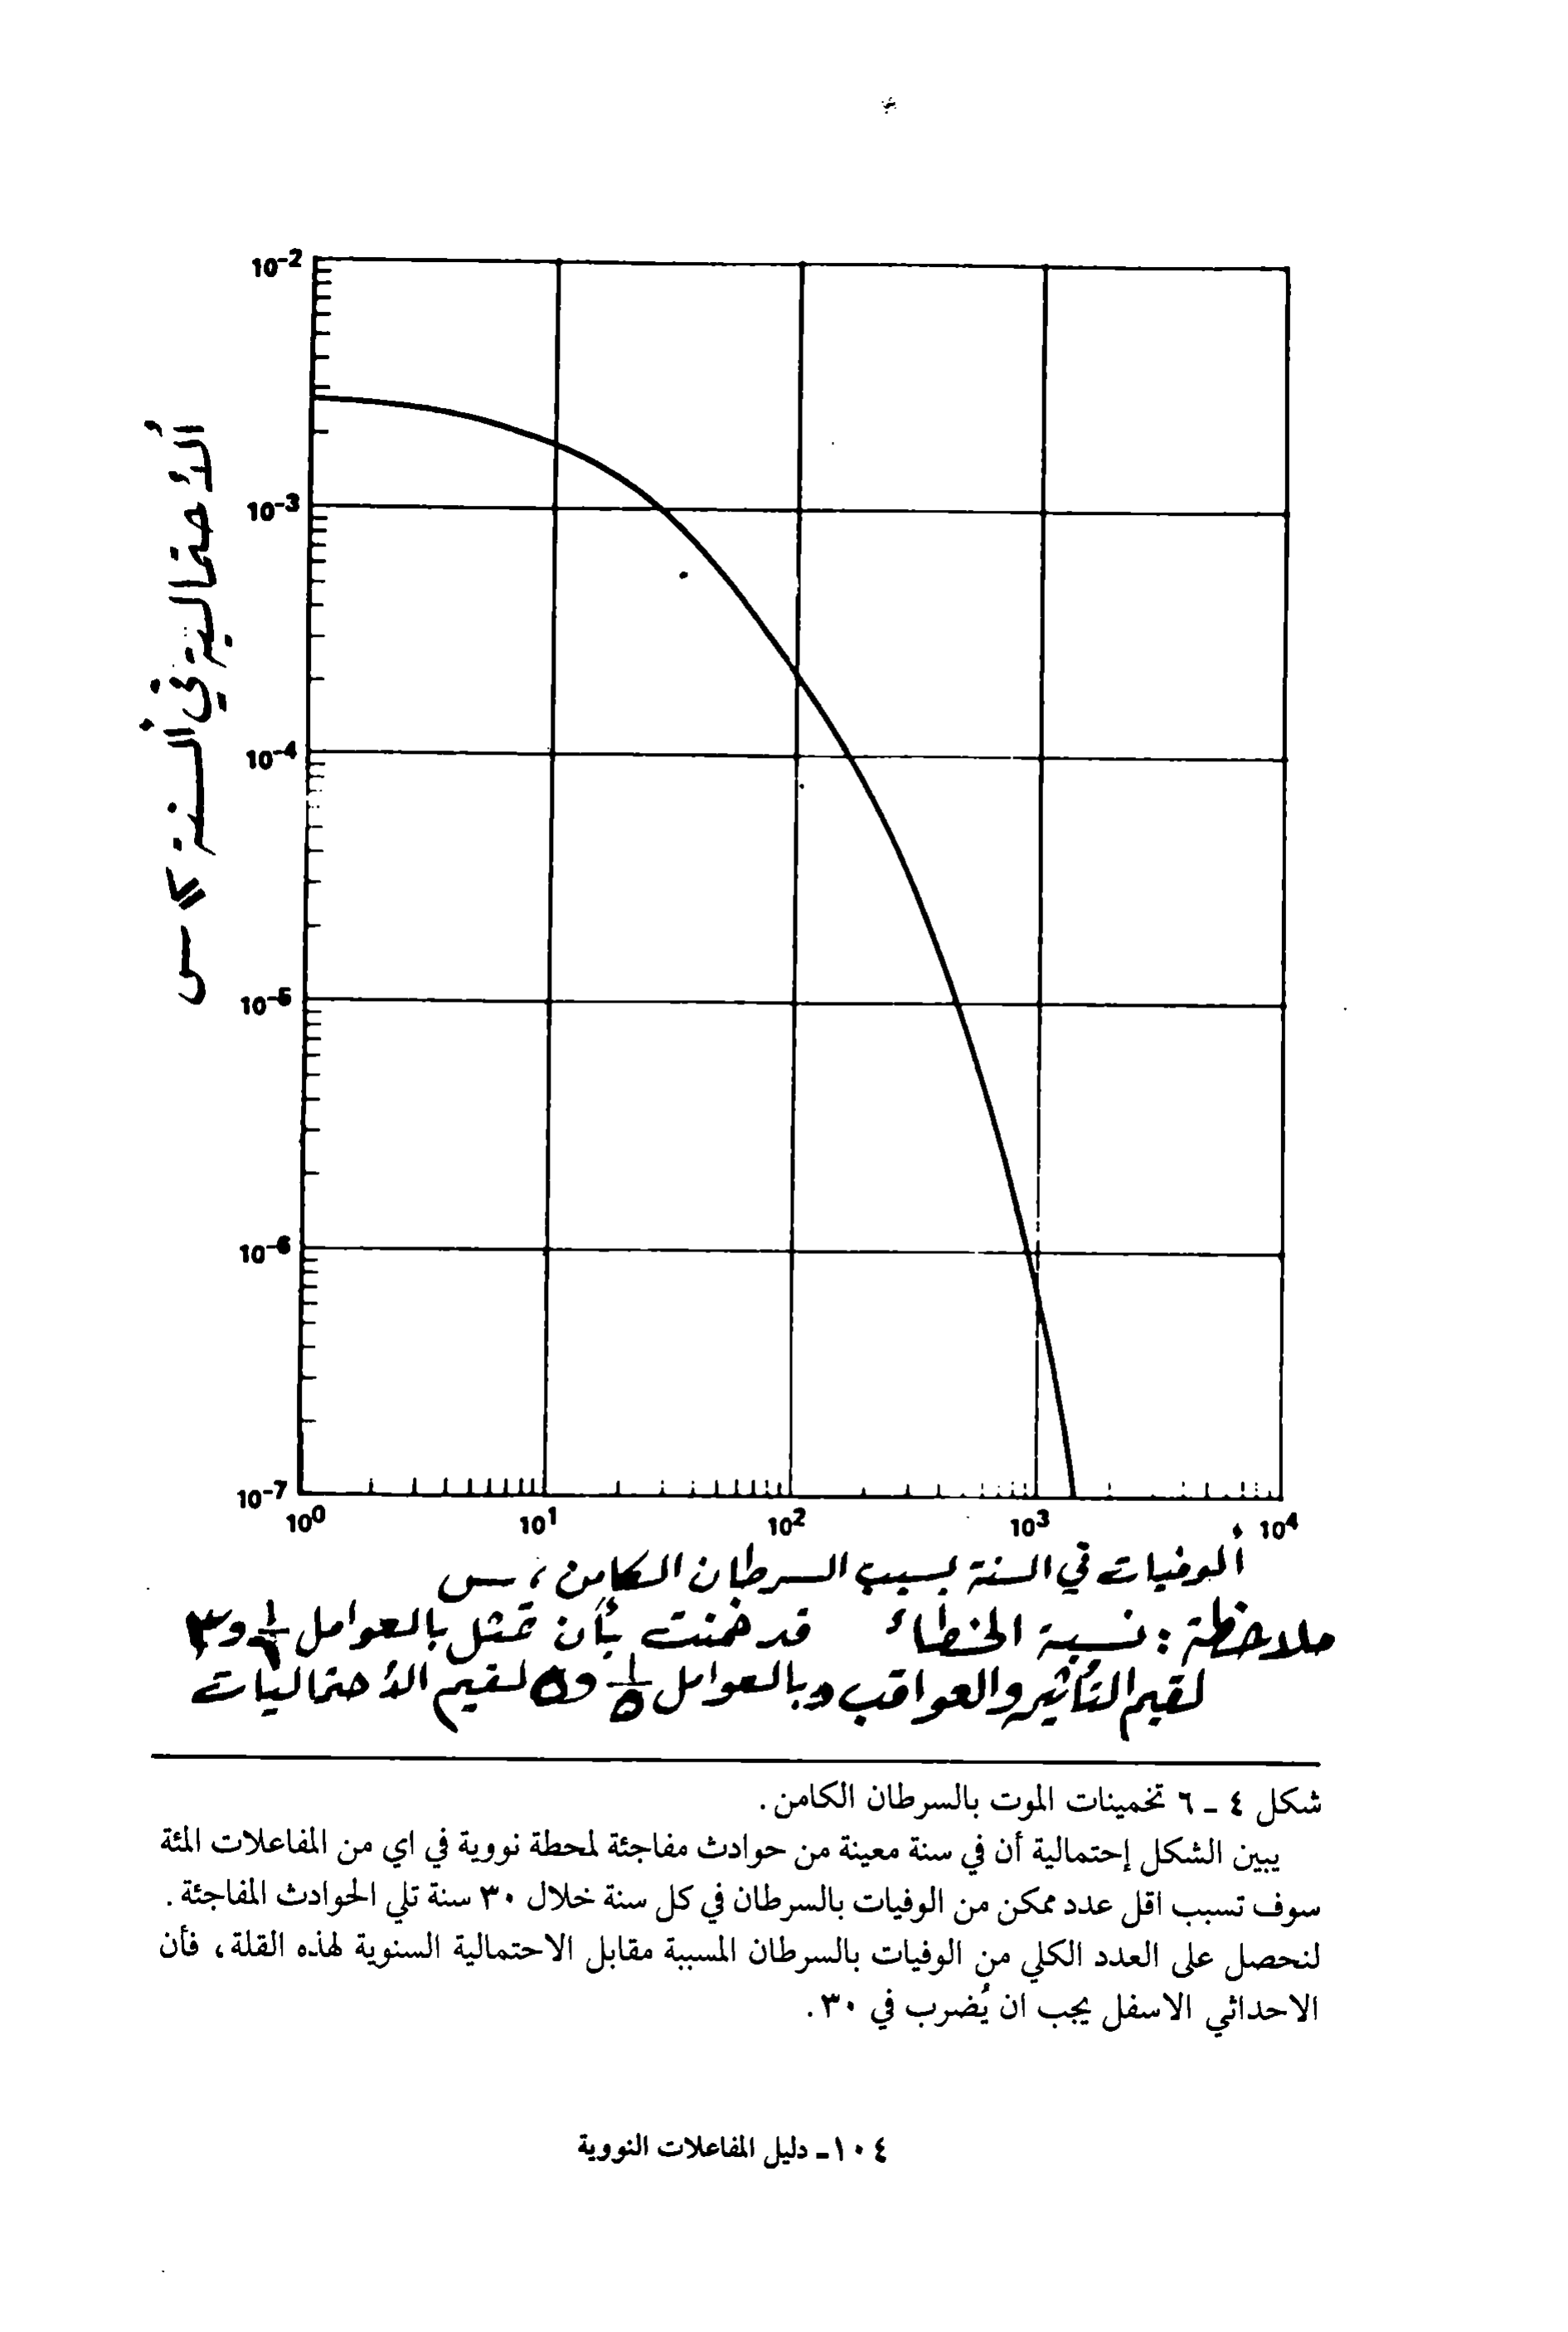 10⁻²
10⁻³
10⁻⁴
10⁻⁵
10⁻⁶
10⁻⁷
الاحتمالية في السنة ≥ س
10⁰ 10¹ 10² 10³ 10⁴
الوفيات في السنة بسبب السرطان الكامن ، س
ملاحظة : نسبة الخطاء قد خمنت بأن تمثل بالعوامل و٣
لقيم التأثير والعواقب وبالعوامل ١/٥ و٥ لقيم الأحتماليات
شكل ٤ ـ ٦ تخمينات الموت بالسرطان الكامن .
يبين الشكل إحتمالية أن في سنة معينة من حوادث مفاجئة لمحطة نووية في اي من المفاعلات المئة
سوف تسبب اقل عدد ممكن من الوفيات بالسرطان في كل سنة خلال ٣٠ سنة تلي الحوادث المفاجئة .
لنحصل على العدد الكلي من الوفيات بالسرطان المسببة مقابل الاحتمالية السنوية لهذه القلة ، فأن
الاحداثي الاسفل يجب ان يُضرب في ٣٠ .
١٠٤ـ دليل المفاعلات النووية